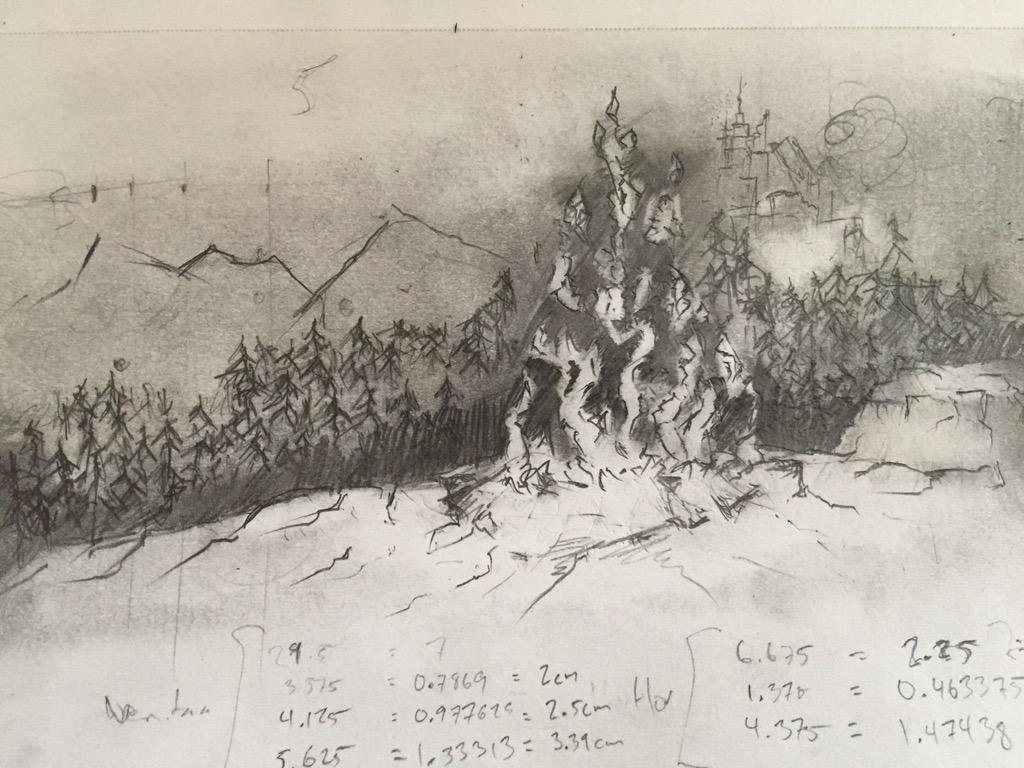 29.5 = 7
3.375 = 0.7869 = 2cm
4.125 = 0.977625 = 2.5cm
5.625 = 1.33313 = 3.39cm
Hor
6.675 = 2.25
1.375 = 0.463375
4.375 = 1.47438